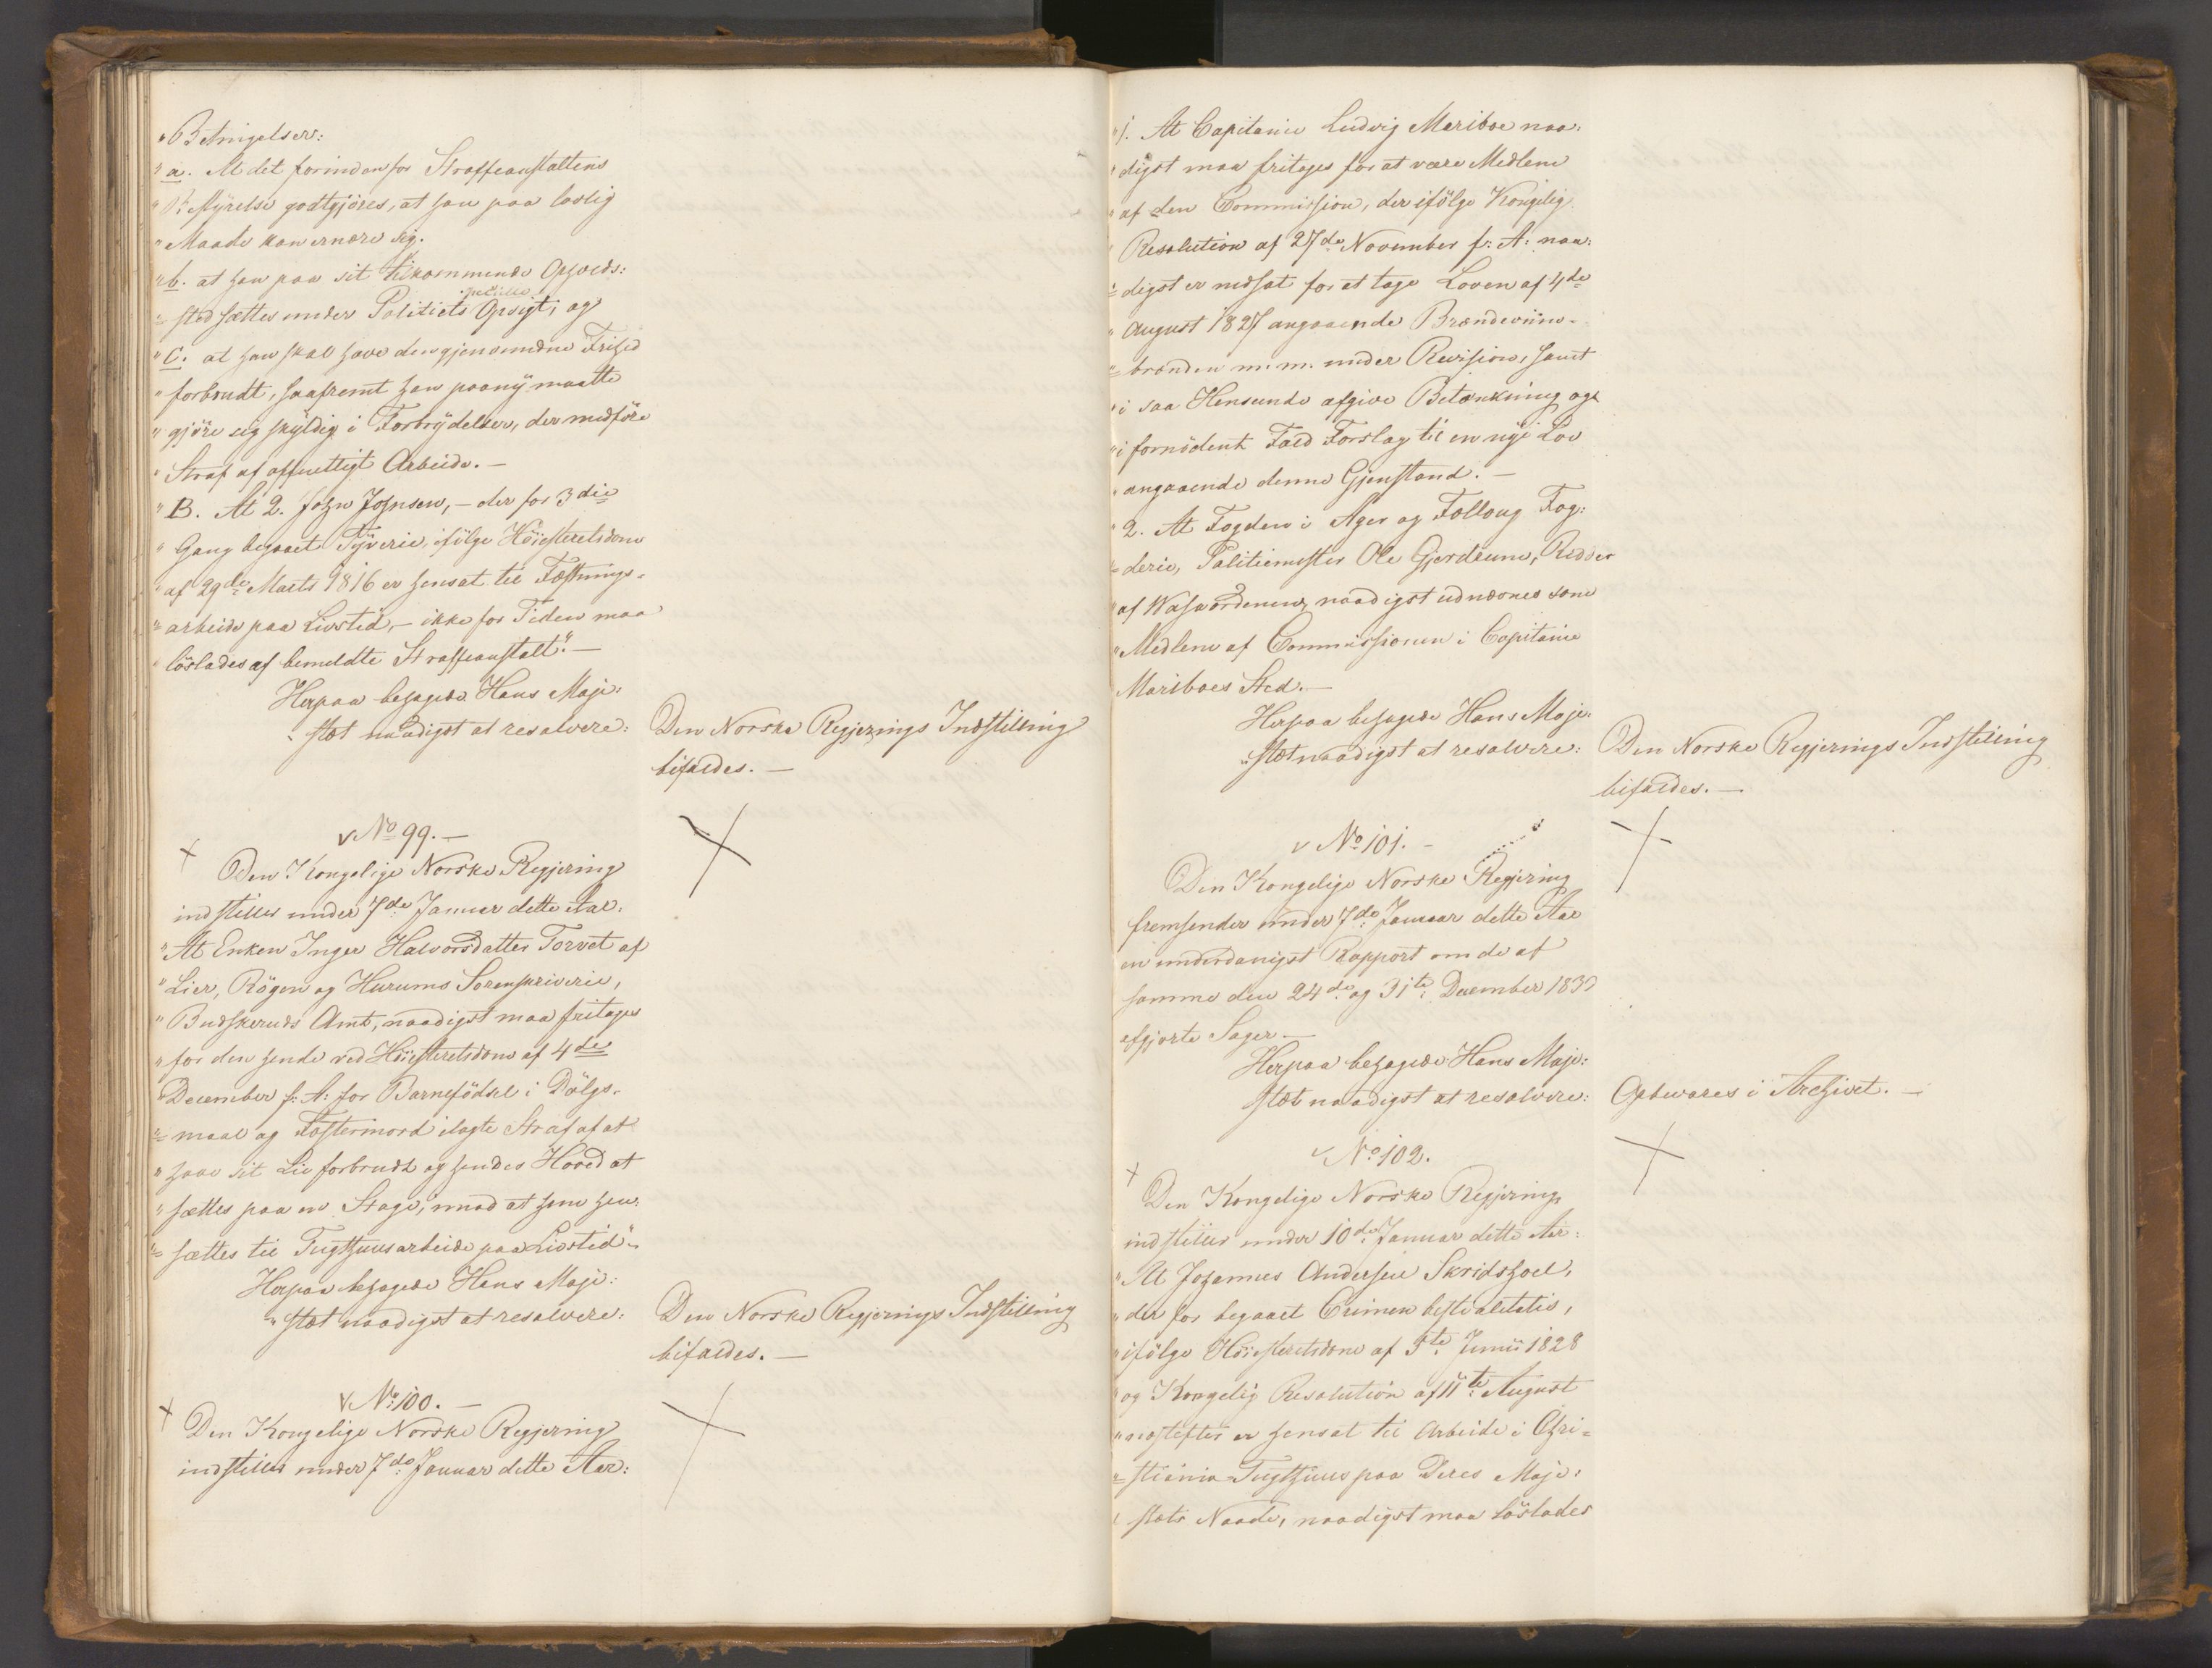 "Betingelser:
"a. At det forinden for Straffeanstaltens
"Bestyrelse godtgjöres, at han paa lovlig
"Maade kan ernære sig.
"b. at han paa sit tilkommende Opholds:
"=sted sættes under Politiets specielle Opsigt; og
"c. at han skal have den gjenvundne Frihed
"forbrudt, saafremt han paany maatte
"gjöre sig skyldig i Forbrydelser, der medföre
"Straf af offentligt Arbeide. —
"B. At 2. John Johnsen, — der for 3die
"Gang begaaet Tyverie, ifölge Höiesteretsdom
"af 29de Marts 1816 er hensat til Fæstnings-
"=arbeide paa Livstid, — ikke for Tiden maa
"löslades af bemeldte Straffeanstalt". —
Herpaa behagede Hans Maje:
"stæt naadigst at resolvere:
Den Norske Regjerings Indstilling
bifaldes. —
v No 99. —
Den Kongelige Norske Regjering
indstiller under 7de Januar dette Aar:
"At Enken Inger Halvorsdatter Torvet af
"Lier, Rögen og Hurums Sorenskriverie,
"Budskeruds Amt, naadigst maa fritages
"for den hende ved Höiesteretsdom af 4de
"December f: A: for Barnefödsel i Dölgs-
"=maal og Fostermord ilagte Straf af at
"have sit Liv forbrudt og hendes Hoved at
"sættes paa en Stage, imod at hun hen:
"=sættes til Tugthuusarbeide paa Livstid"
Herpaa behagede Hans Maje:
"stæt naadigst at resolvere:
Den Norske Regjerings Indstilling
bifaldes. —
v No 100. —
Den Kongelige Norske Regjering
indstiller under 7de Januar dette Aar:
"1. At Capitaine Ludvig Mariboe naa:
"digst maa fritages for at være Medlem
"af den Commission, der ifölge Kongelig
"Resolution af 27de November f: A: naa:
"=digst er nedsat for at tage Loven af 4de
"August 1827 angaaende Brændeviins-
"=brænden m. m. under Revision, samt
"i saa Henseende afgive Betænkning og
"i fornödent Fald Forslag til en nye Lov
"angaaende denne Gjenstand. —
"2. At Fogden i Ager og Follong Fog:
"=derie, Politiemester Ole Gjerdrum, Ridder
"af Wasaordenen, naadigst udnævnes som
"Medlem af Commissionen i Capitaine
Mariboes Sted. —
Herpaa behagede Hans Maje:
"stæt naadigst at resolvere:
Den Norske Regjerings Indstilling
bifaldes. —
v No 101. —
Den Kongelige Norske Regjering
fremsender under 7de Januar dette Aar
en underdanigst Rapport om de af
samme den 24de og 31te December 1830
afgjorte Sager. —
Herpaa behagede Hans Maje:
stæt naadigst at resolvere:
Opbevares i Archivet. —
v No 102.
Den Kongelige Norske Regjering
indstiller under 10de Januar dette Aar:
"At Johannes Andersen Skridshoel,
"der for begaaet Crimen bestialitatis,
"ifölge Höiesteretsdom af 5te Junii 1828
"og Kongelig Resolution af 11te August
"næstefter er hensat til Arbeide i Chri=
"=stiania Tugthuus paa Deres Maje:
"stæts Naade, naadigst maa löslades